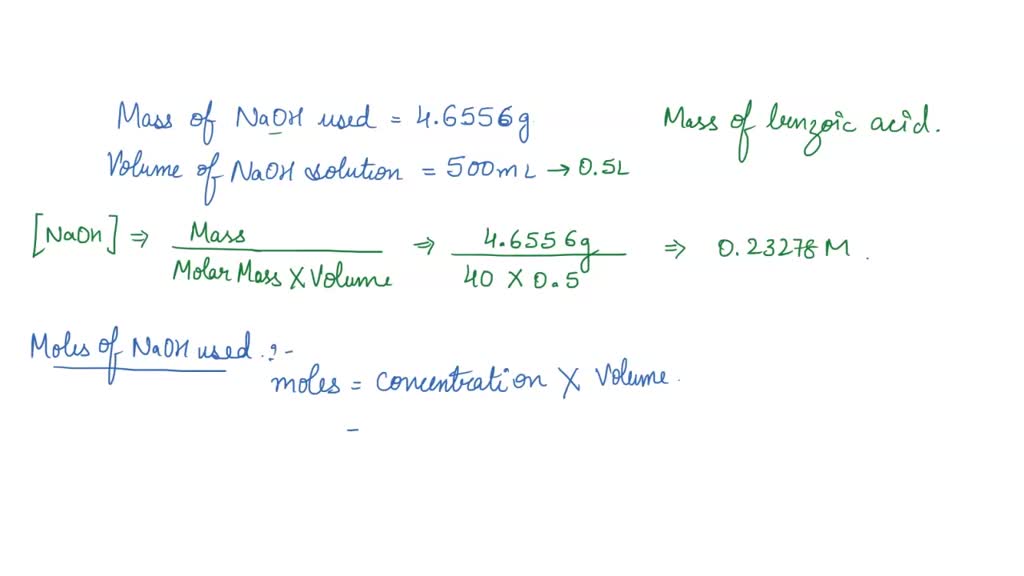 Mass of NaOH used = 4.6556g
Mass of benzoic acid.
Volume of NaOH solution = 500mL → 0.5L
[NaOH] ⇒ Mass / Molar Mass X Volume ⇒ 4.6556g / 40 X 0.5 ⇒ 0.23278 M.
Moles of NaOH used :-
moles = concentration X Volume.
=